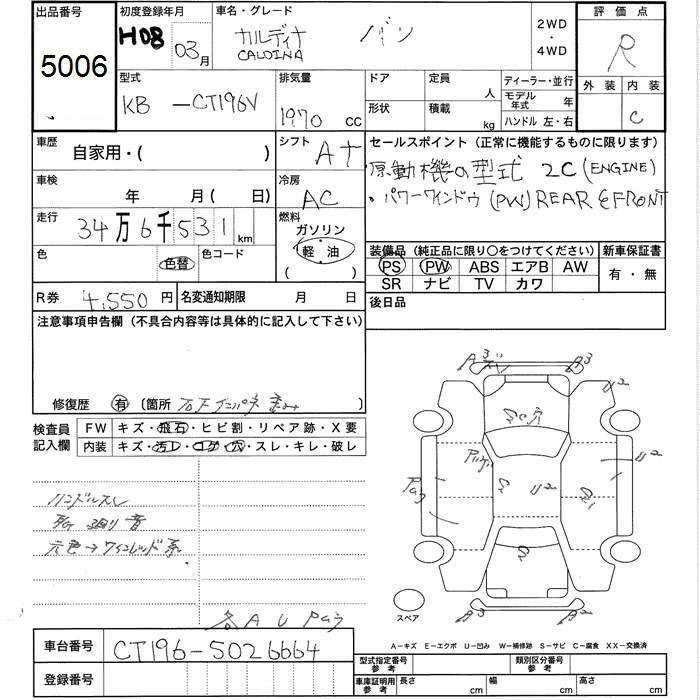 出品番号 初度登録年月 車名・グレード 2WD ・ 4WD 評価点
5006 H08 03月 カルディナ バン R
CALDINA
型式 排気量 ドア 定員 人 ディーラー・並行 外装 内装
KB -CT196V 1970 cc 形状 積載 kg モデル年式 年 C
ハンドル 左・右
車歴 自家用・( ) シフト AT セールスポイント (正常に機能するものに限ります)
原動機の型式 2C (ENGINE)
車検 年 月(日) 冷房 AC ・パワーウインドウ (PW) REAR & FRONT
走行 34万6千531km 燃料 ガソリン
軽油
( )
色 色替 色コード 装備品 (純正品に限り○をつけてください) 新車保証書
PS PW ABS エアB AW 有・無
SR ナビ TV カワ
R券 4,550円 名変通知期限 月 日 後日品
注意事項申告欄 (不具合内容等は具体的に記入して下さい)
修復歴 有 (箇所
検査員記入欄 FW キズ・飛石・ヒビ割・リペア跡・X要
内装 キズ・汚レ・コゲ・穴・スレ・キレ・破レ
ハンドルスレ
音
元色→ワインレッド系
各 A U Pムラ
A3 A3
U2
U2
U2
スペア
車台番号 CT196-5026664
登録番号
A-キズ E-エクボ U-凹み W-補修跡 S-サビ C-腐食 XX-交換済
型式指定番号 参考 類別区分番号 参考
車庫証明用 参考 長さ cm 幅 cm 高さ cm